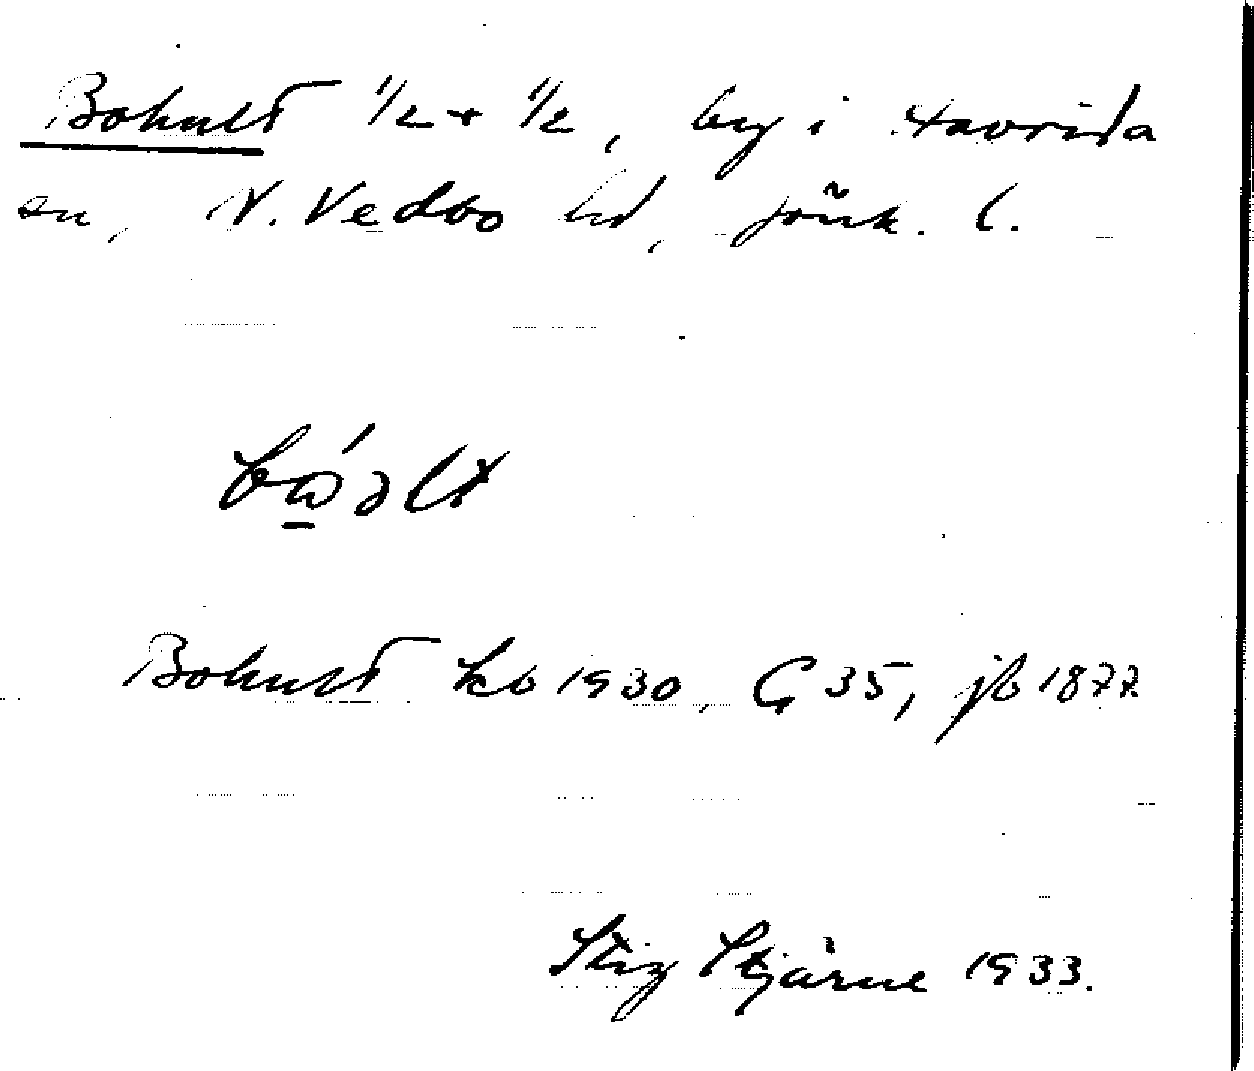 Bohult 1/2 + 1/2, by i Havrida
sn, N. Vedbo hd, Jönk. l.
Bohult kb 1930, G 35, jb 1877
Stig Stjärne 1933.